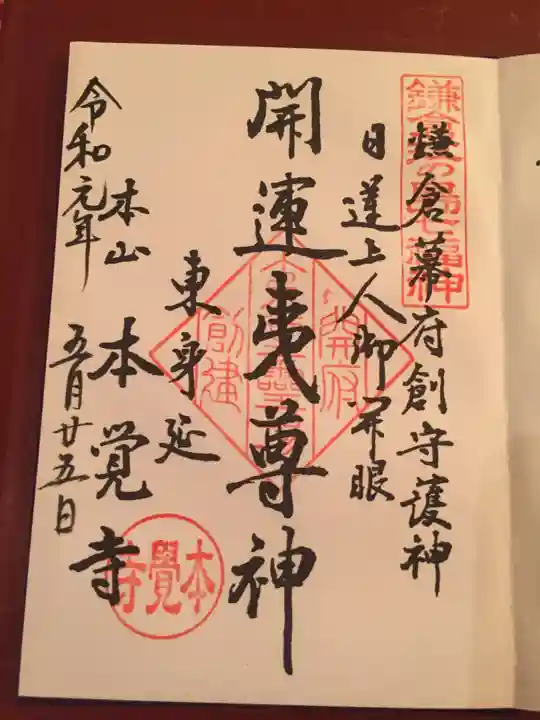 鎌倉幕府創守護神
日蓮上人御開眼
開運夷尊神
東身延
本山 本覺寺
令和元年 五月廿五日
開府
創建
本覺寺